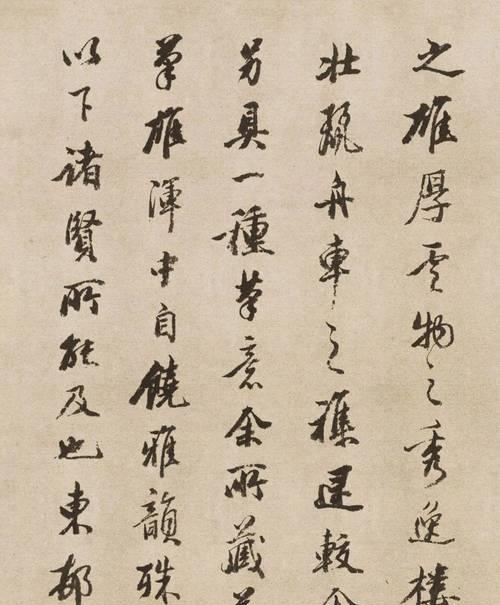 之雄厚雲物之秀逸樓
壯麗舟車之襍遝較
另具一種筆意余所藏
筆雄渾中自饒雅韻殊
以下諸賢所能及也東邨